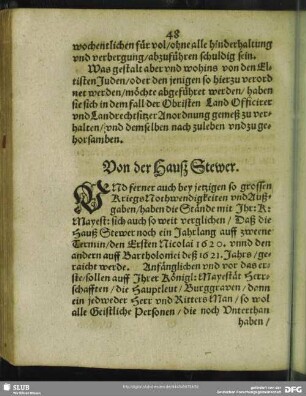 48
wochentlichen für vol/ohne alle hinderhaltung
vnd verbergung/abzuführen schuldig sein.
Was gestalt aber vnd wohins von den El-
tisten Juden/oder den jenigen so hierzu verord
net werden/möchte abgeführet werden/haben
sie sich in dem fall der Obristen Land Officirer
vnd Landrechtsitzer Anordnung gemeß zu ver-
halten/vnd demselben nach zuleben vnd zu ge-
horsamben.
Von der Hauß Stewer.
VNd ferner auch bey jetzigen so grossen
Kriegs Nothwendigkeiten vnd Auß-
gaben/haben die Stände mit Ihr: K:
Mayest: sich auch so weit verglichen/Daß die
Hauß Stewer noch ein Jahrlang auff zweene
Termin/den Ersten Nicolai 1620. vnnd den
andern auff Bartholomei deß 1621. Jahrs/ge-
raicht werde. Anfänglichen vnd vor das er-
ste/sollen auff Ihrer Königl: Mayestät Herr-
schafften/die Hauptleut/Burggraven/denn
ein jedweder Herr vnd Ritters Man/so wol
alle Geistliche Personen/die noch Vnterthan
haben/
SLUB